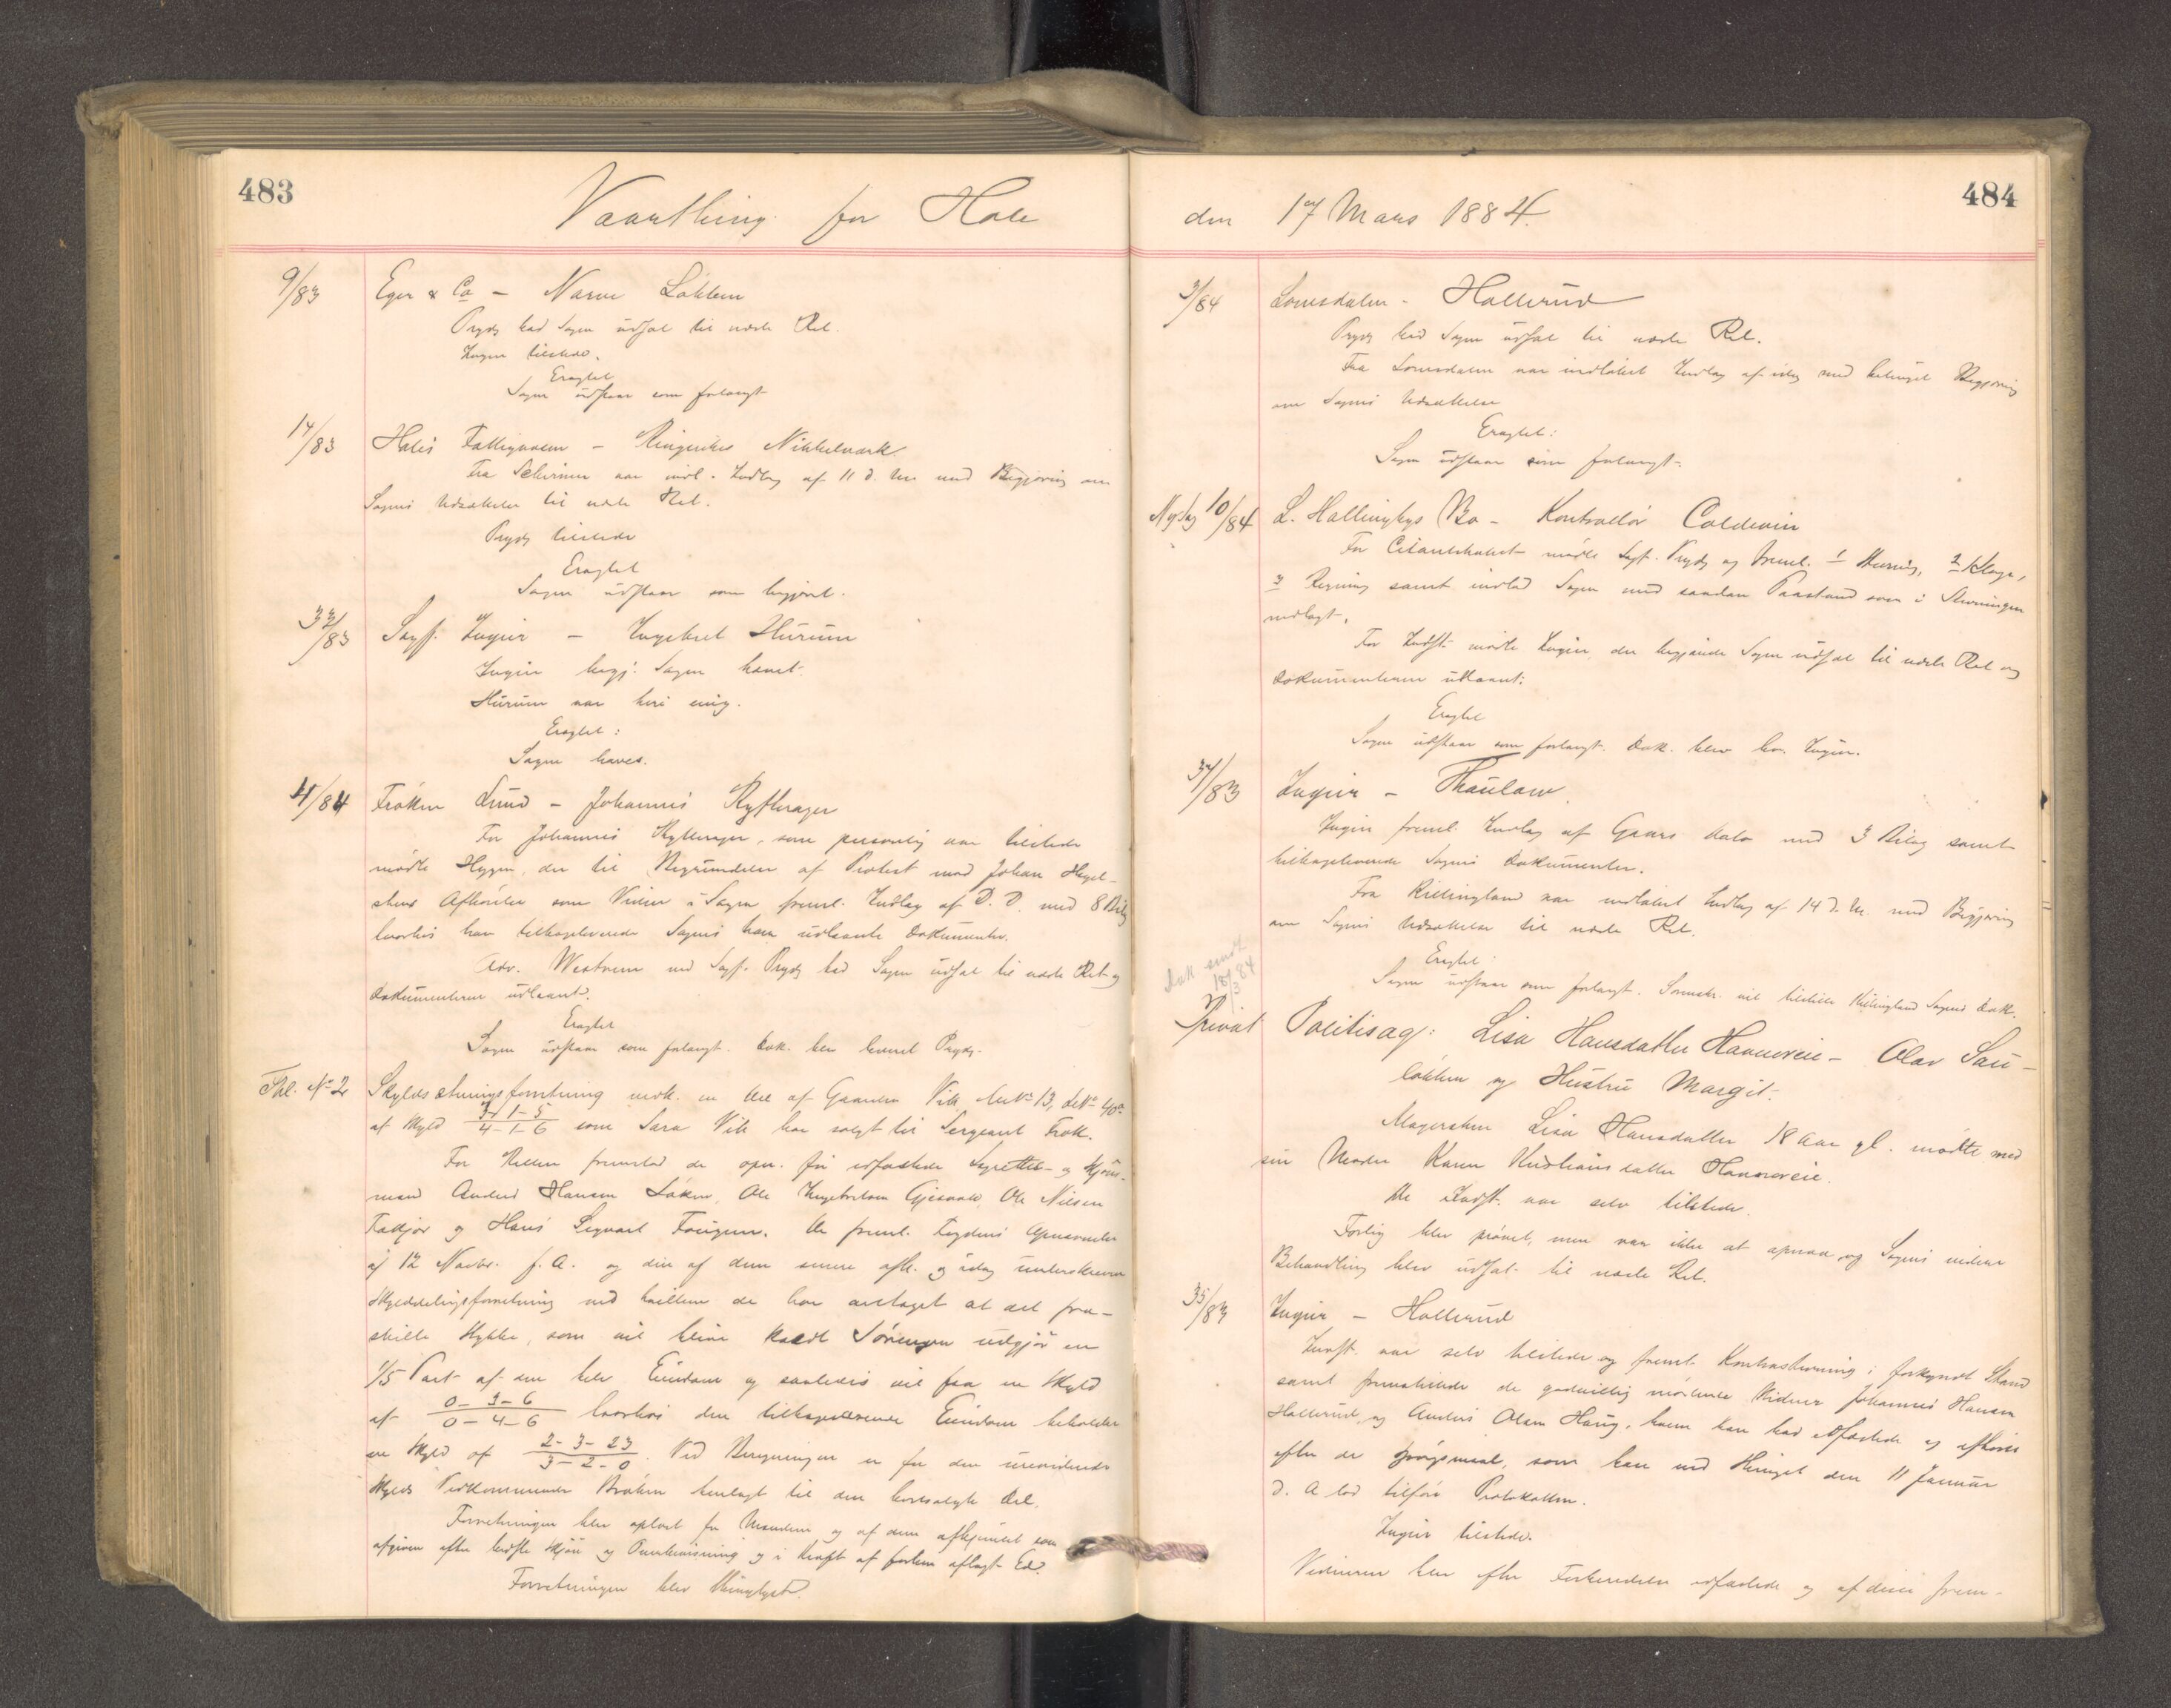 483
Vaarthing for Hole
9/83 Eger & Co – Narve Løkken
Pryds bad Sagen udsat til næste Ret.
Ingier tilstede.
Eragtet
Sagen udstaar som forlangt
14/83 Holes Fattigvæsen – Ringerikes Nikkelværk
Fra Schrim var indl. Indlæg af 11 d. M. med Begjæring om
Sagens Udsættelse til næste Ret.
Pryds tilstede
Eragtet
Sagen udstaar som begjært.
33/83 Sagf. Ingier – Ingebret Hurum
Ingier begj. Sagen hævet.
Hurum var heri enig.
Eragtet:
Sagen hæves.
4/84 Frøken Lund – Johannes Rytterager
For Johannes Rytterager, som personlig var tilstede
mødte Hygen, der til Begrundelse af Protest mod Johan Hegel-
stens Afhørelse som Vidne i Sagen freml. Indlæg af D. D. med 8 Bilag
hvorhos han tilbageleverede Sagens ham udlaante Dokumenter.
Adv. Westrum ved Sagf. Pryds bad Sagen udsat til næste Ret og
Dokumenterne udlaant.
Eragtet
Sagen udstaar som forlangt. Dok. blev leveret Pryds.
Thl. No 2 Skyldsætningsforretning vedk. en Del af Gaarden Vik M.No 13, L.No 40a
af Skyld 3-1-5 / 4-1-6 som Sara Vik har solgt til Sergeant Frok.
For Retten fremstod de opn. før edfæstede Lagrettes- og Skjøns-
mænd Anders Hansen Løken, Ole Ingebretsen Gjesvold, Ole Nilsen
Fekjær og Hans Segvart Fougner. De freml. Fogdens Opnævnelse
af 12 Novbr. f. A. og den af dem senere afh. og idag underskrevne
Skylddelingsforretning ved hvilken de har antaget at det fra-
skilte Stykke, som vil blive kaldt Søringen udgjør en
1/5 Part af den hele Eiendom og saaledes vil faa en Skyld
af 0-3-6 / 0-4-6 hvorhos den tilbageværende Eiendom beholder
en Skyld af 2-3-23 / 3-2-0. Ved Beregningen er for den ureviderede
Skylds Vedkommende Brøken henlagt til den bortsolgte Del.
Forretningen blev oplæst for Mændene og af dem afhjemlet som
afgiven efter bedste Skjøn og Overbevisning og i Kraft af forhen aflagt Ed.
Forretningen blev thinglyst.
484
den 17 Mars 1884.
3/84 Lomsdalen – Hollerud
Pryds bad Sagen udsat til næste Ret.
Fra Lomsdalen var indløbet Indlæg af idag med betinget Begjæring
om Sagens Udsættelse
Eragtet:
Sagen udstaar som forlangt.
Ny Sag 10/84 L. Hallingbys Bo – Kontrollør Coldevin
For Citantskabet mødte Sagf. Pryds og freml. 1 Stevning, 2 Klage,
3 Regning samt indlod Sagen med saadan Paastand som i Stevningen
nedlagt.
For Indst. mødte Ingier, der begjærede Sagen udsat til næste Ret og
Dokumenterne udlaant:
Eragtet
Sagen udstaar som forlangt. Dok. blev lev. Ingier.
34/83 Ingier – Thaulow.
Ingier freml. Indlæg af Gaars Dato med 3 Bilag samt
tilbageleverede Sagens Dokumenter.
Fra Killingland var indløbet Indlæg af 14 d. M. med Begjæring
om Sagens Udsættelse til næste Ret.
Eragtet
Sagen udstaar som forlangt. Sorenskr. vil tilstille Killingland Sagens Dok.
Dok sendt 18/3 84
Privat Politisag: Lisa Hansdatter Hanneveie – Olav Sau-
løkken og Hustru Margit.
Klagersken Lisa Hansdatter 18 Aar gl. mødte med
sin Moder Karen Kristiansdatter Hanneveie.
De Indst. var selv tilstede.
Forlig blev prøvet, men var ikke at opnaa og Sagens videre
Behandling blev udsat til næste Ret.
35/83 Ingier – Hollerud
Indst. var selv tilstede og freml. Kontrastevning i forkyndt Stand
samt fremstillede de godvillig mødende Vidner Johannes Hansen
Hollerud og Anders Olsen Haug, hvem han bad edfæstede og afhørte
efter de Spørgsmaal, som han ved Thinget den 11 Januar
d. A lod tilføre Protokollen.
Ingier tilstede.
Vidnerne blev efter Forberedelse edfæstede og af disse frem-